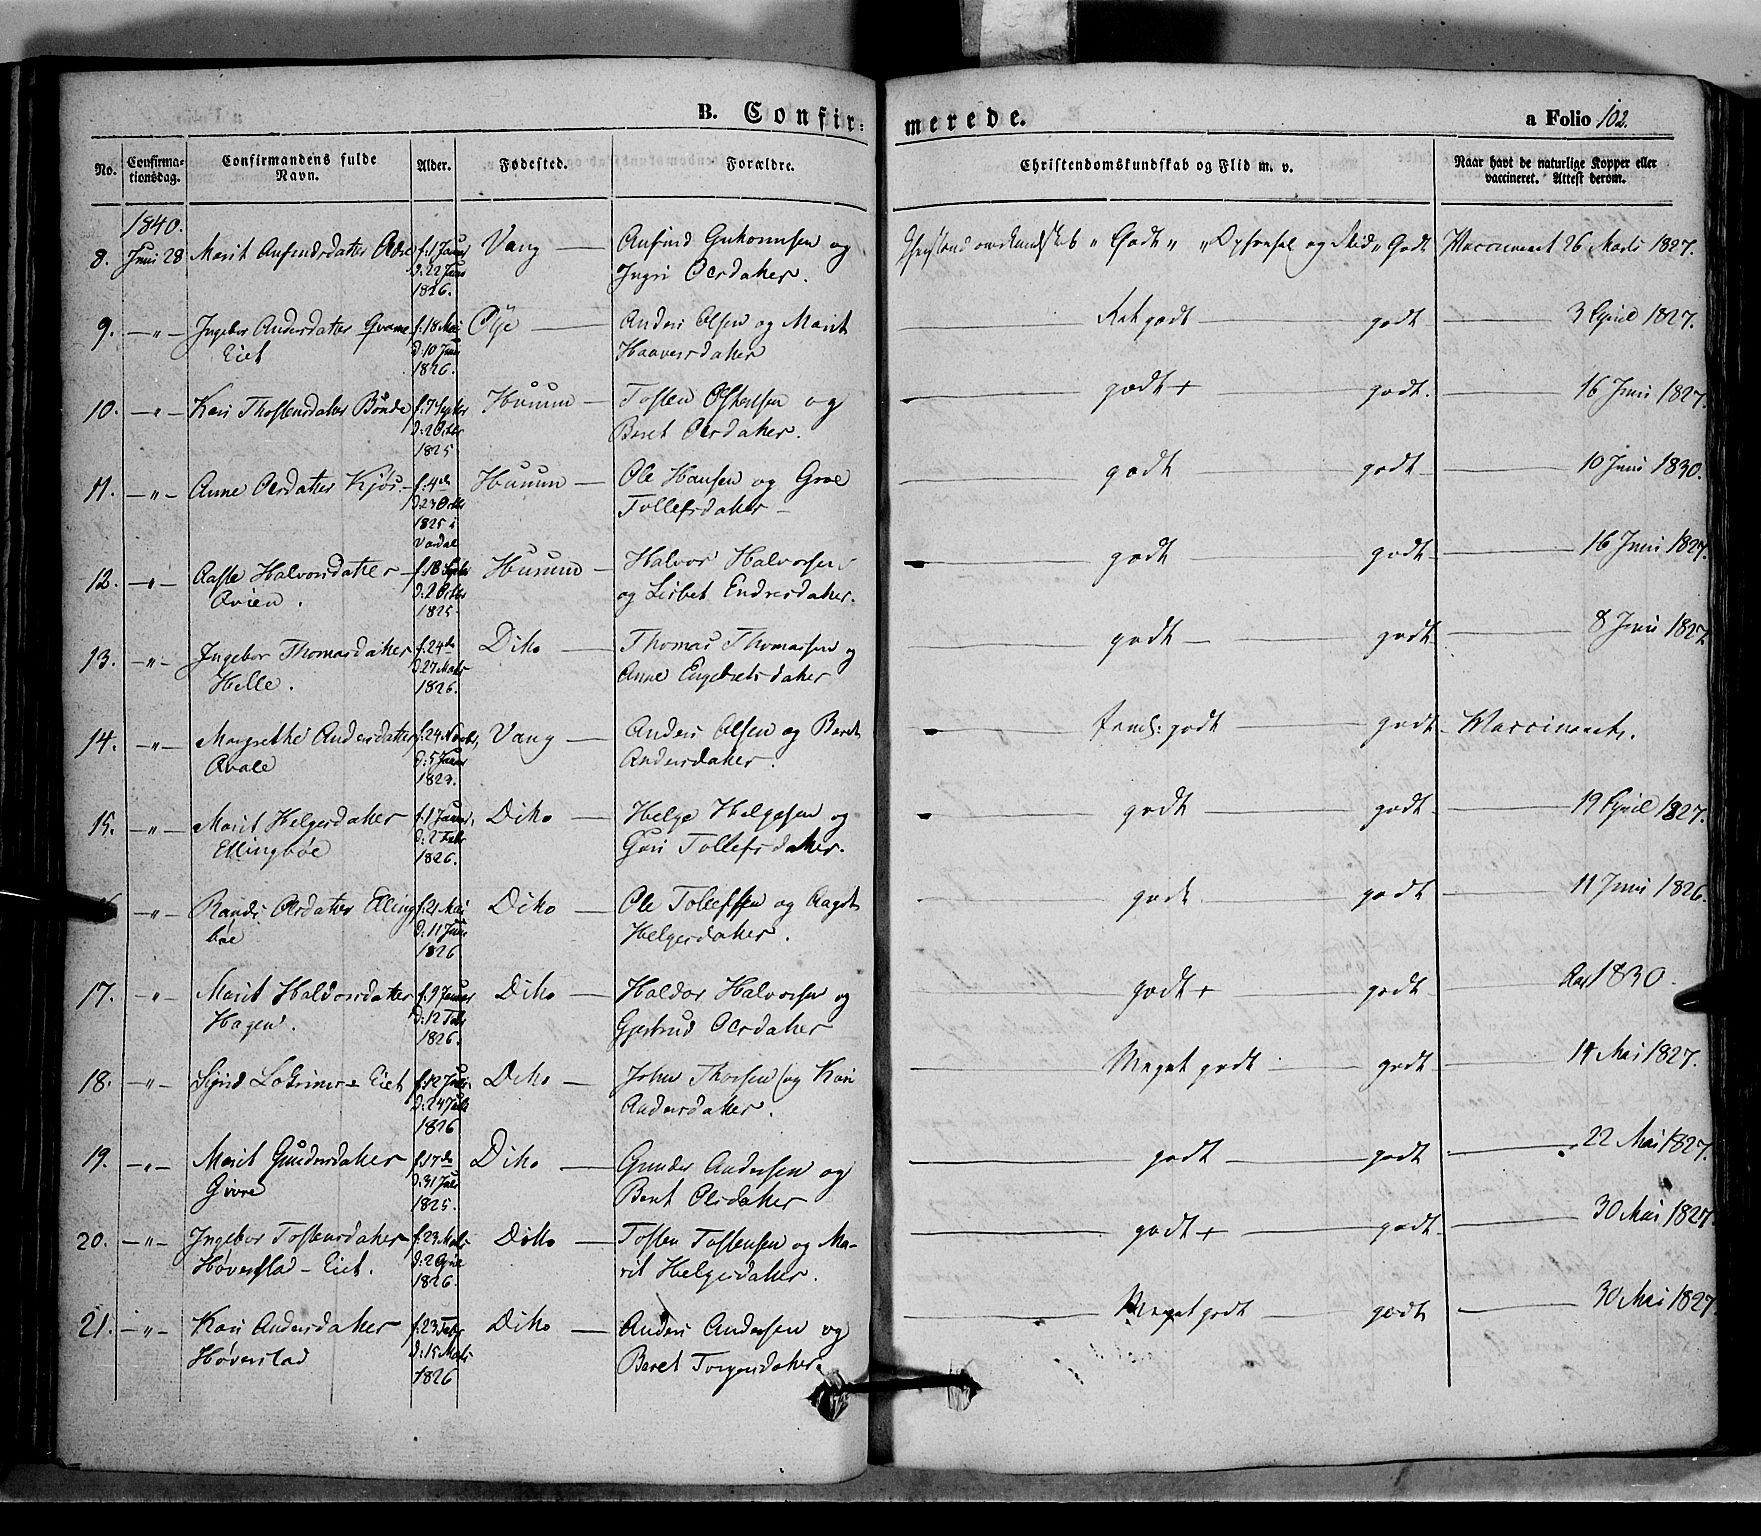 B. Confir-
merede.
a Folio 102.
No.
Confirma-
tionsdag.
Confirmandens fulde
Navn.
Alder.
Fødested.
Forældre.
Christendomskundskab og Flid m. v.
Naar havt de naturlige Kopper eller
vaccineret. Attest derom.
1840.
8. Juni 28 Marit f. 1 Januar Vang — og Godt og Flid Godt Vaccineret 26 Marts 1827.
d: 22 Ingri Olsdatter.
1826.
9. — " — Ingebor Andersdatter f. 18 Mai Øye — Anders Olsen og Marit godt — godt — 3 April 1827.
Eiet d: 10 Juni Haaversdatter
1826.
10. — " — Kari Thostensdatter Bönde f. 7 Septbr Huuum — Tosten og — godt + — godt. — 16 Juni 1827.
d: 2 Octbr Beret Olsdatter.
1825.
11. — " — Anne Olsdatter Kjøs — f. 4de Huuum — Ole Hansen og Groe — godt — godt — 10 Juni 1830.
d: 23 Octbr Tollefsdatter —
1825 i
Vardal
12. — " — Halvorsdatter — f. 18 Septbr Husum — Halvor Halvorsen — godt — godt — 16 Juni 1827.
Qvien. d: 2 Octbr og Lisbet Endresdatter.
1825.
13. — " — Ingebor Thomasdatter f. 24de Ditto — Thomas Thomassen og — godt — godt — 8 Juni 1827.
Helle. d: 27 Marts Anne Engebretsdatter
1826.
14. — " — Margrethe Andersdatter f. 24 Novbr, Vang — Anders Olsen og Beret — godt — godt — Vaccineret.
Qvale d: 5 Januar Andersdatter.
15. — " — Marit Helgesdatter f. 1 Januar, Ditto — Helge Helgesen og — godt — godt — 19 April 1827.
Ellingbøe d: 2 Febr Guri Tollefsdatter.
1826.
— " — Randi Olsdatter Elling f. 21 Mai Ditto — Ole og Helgesdatter. — godt — godt — 11 Juni 1826.
bøe d: 11 Juni
1826
17. — " — Marit Haldorsdatter f. 9 Januar Ditto — Haldor Halvorsen og — godt + — godt — 1830.
Hagen. d: 12 Febr Gjertrud Olsdatter
1826.
18. — " — Sigrid Eiet f. 12 Ditto — John Thorsen og Kari — Meget godt — godt — 14 Mai 1827.
d: 24 Andersdatter.
1826
19. — " — Marit Gundersdatter f. 17de Ditto — Gunder Andersen og — godt — godt — 22 Mai 1827.
d: 31 Juli Beret Olsdatter
1825.
20. — " — Ingebor Tostensdatter f. 23 Marts Ditto — Tosten Tostensen og Ma- — godt + — godt — 30 Mai 1827
Høverstad — Eiet. d: 2 April rit Helgesdatter.
1826.
21. — " — Kari Andersdatter f. 23 Febr Ditto — Anders Andersen og — Meget godt — godt — 30 Mai 1827
Høverstad d: 15 Marts Beret Torgersdatter.
1826